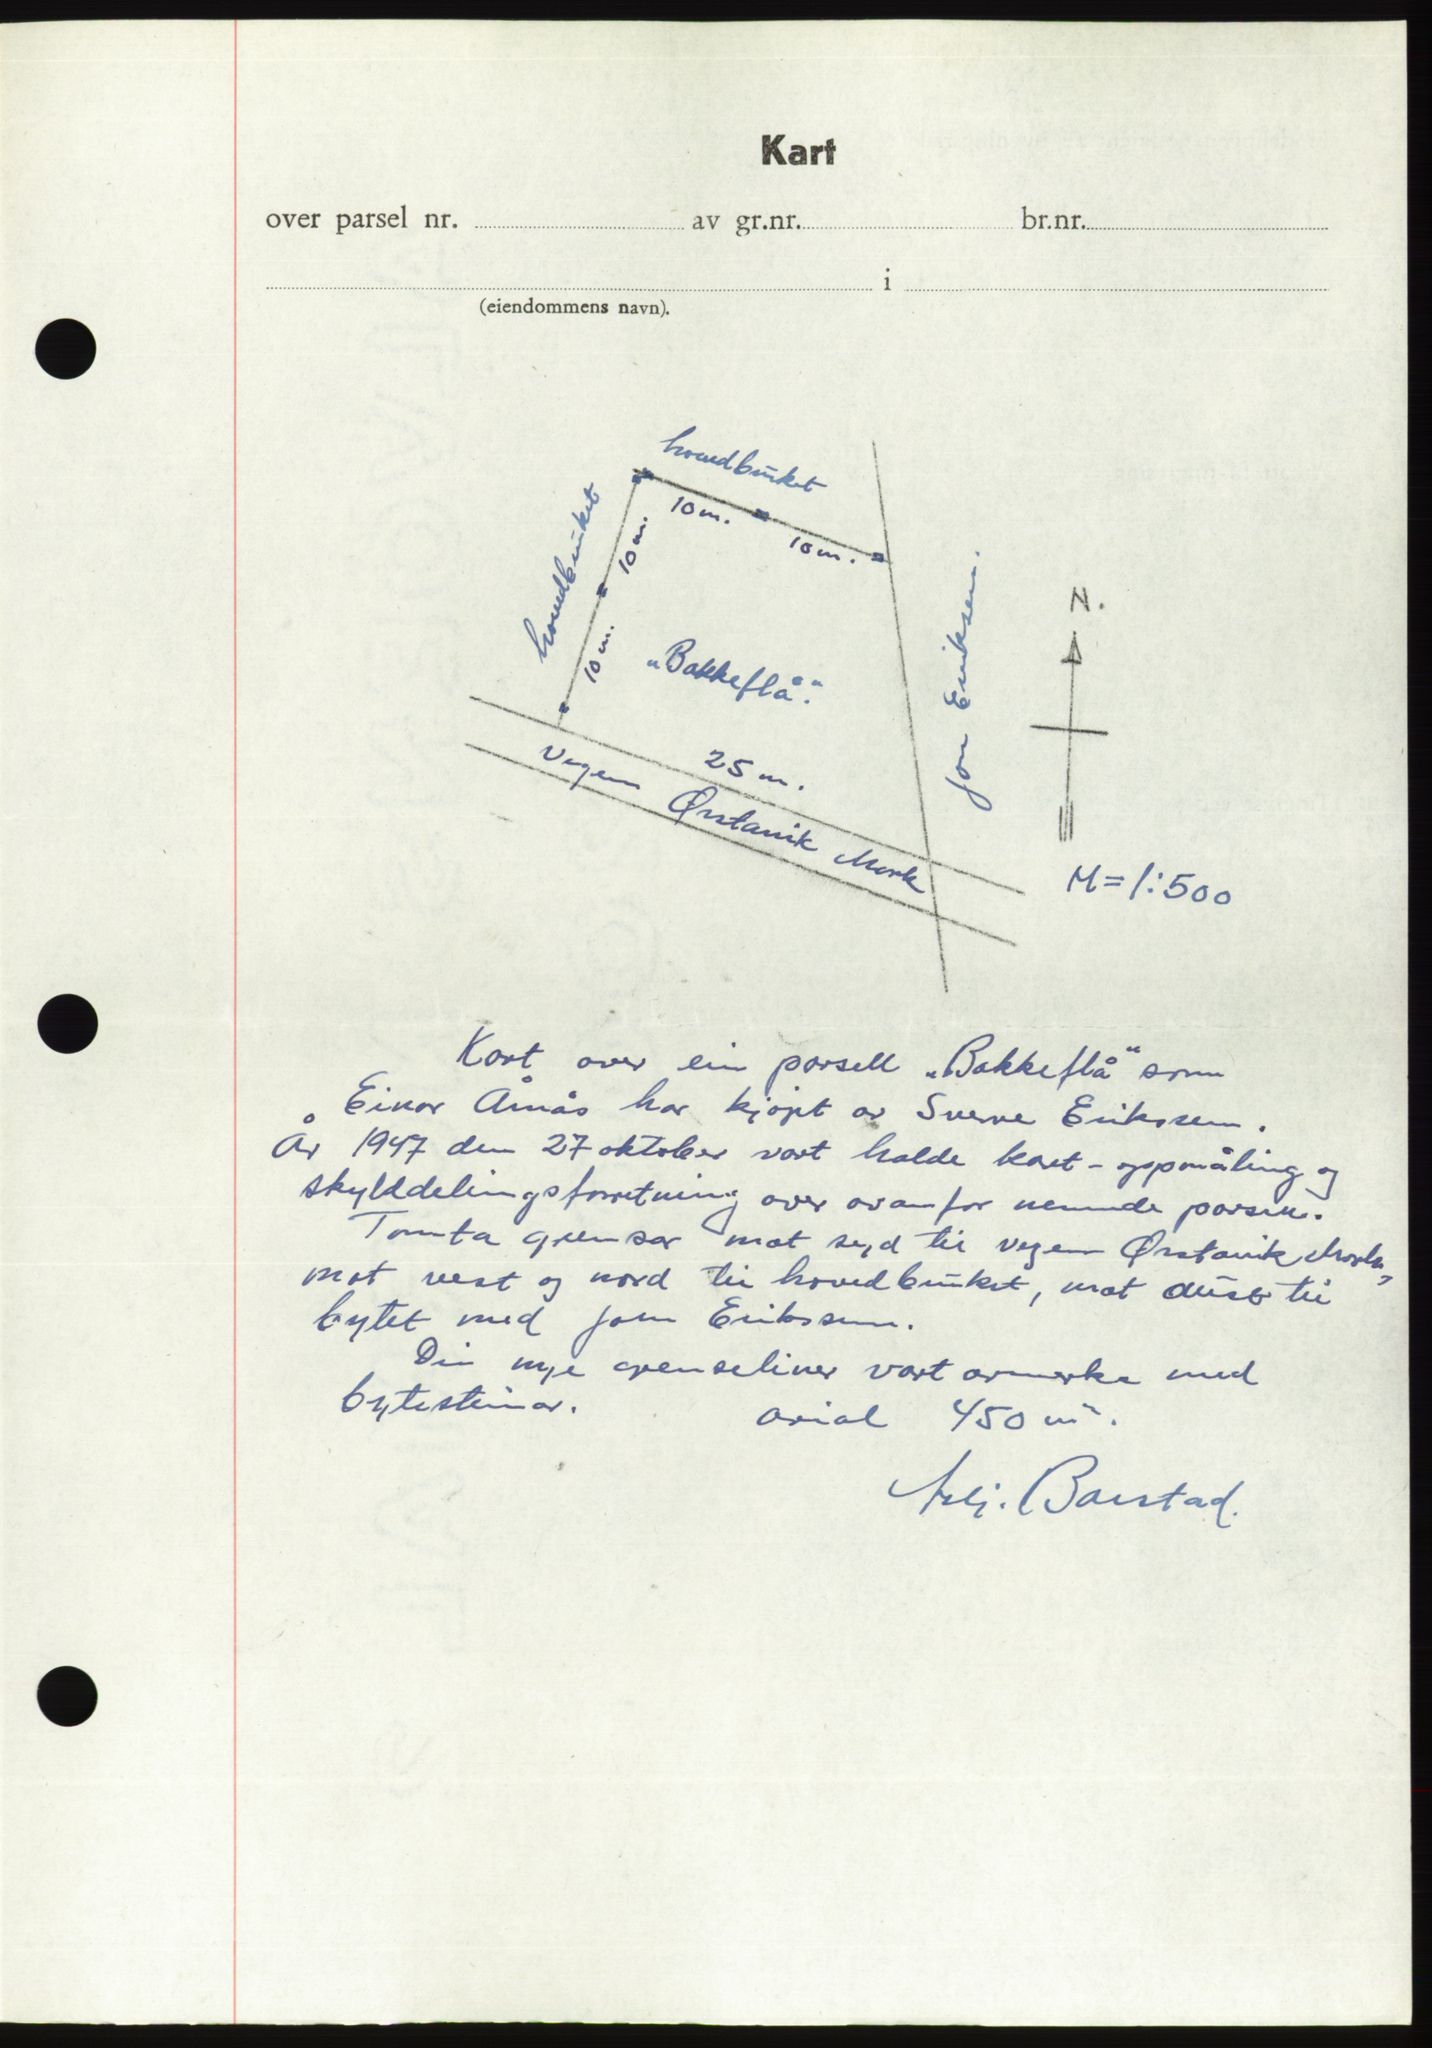 Kart
over parsel nr. av gr.nr. br.nr.
i
(eiendommens navn).
hovedbruket
hovedbruket
10 m.
10 m.
10 m.
10 m.
„Bakkeflå“.
Jon Eriksen.
N.
25 m.
Vegen Ørstavik Mork
M = 1:500
Kart over ein parsell „Bakkeflå“ som
Einar Åmås har kjøpt av Sverre Erikssen.
År 1947 den 27 oktober vart halde kart-oppmåling og
skylddelingsforretning over ovanfor nemnde parsell.
Tomta grensar mot syd til vegen Ørstavik Mork,
mot vest og nord til hovedbruket, mot aust til
bytet med Jon Erikssen.
Dei nye grenseliner vart avmerka med
bytesteinar. arial 450 m².
Barstad.